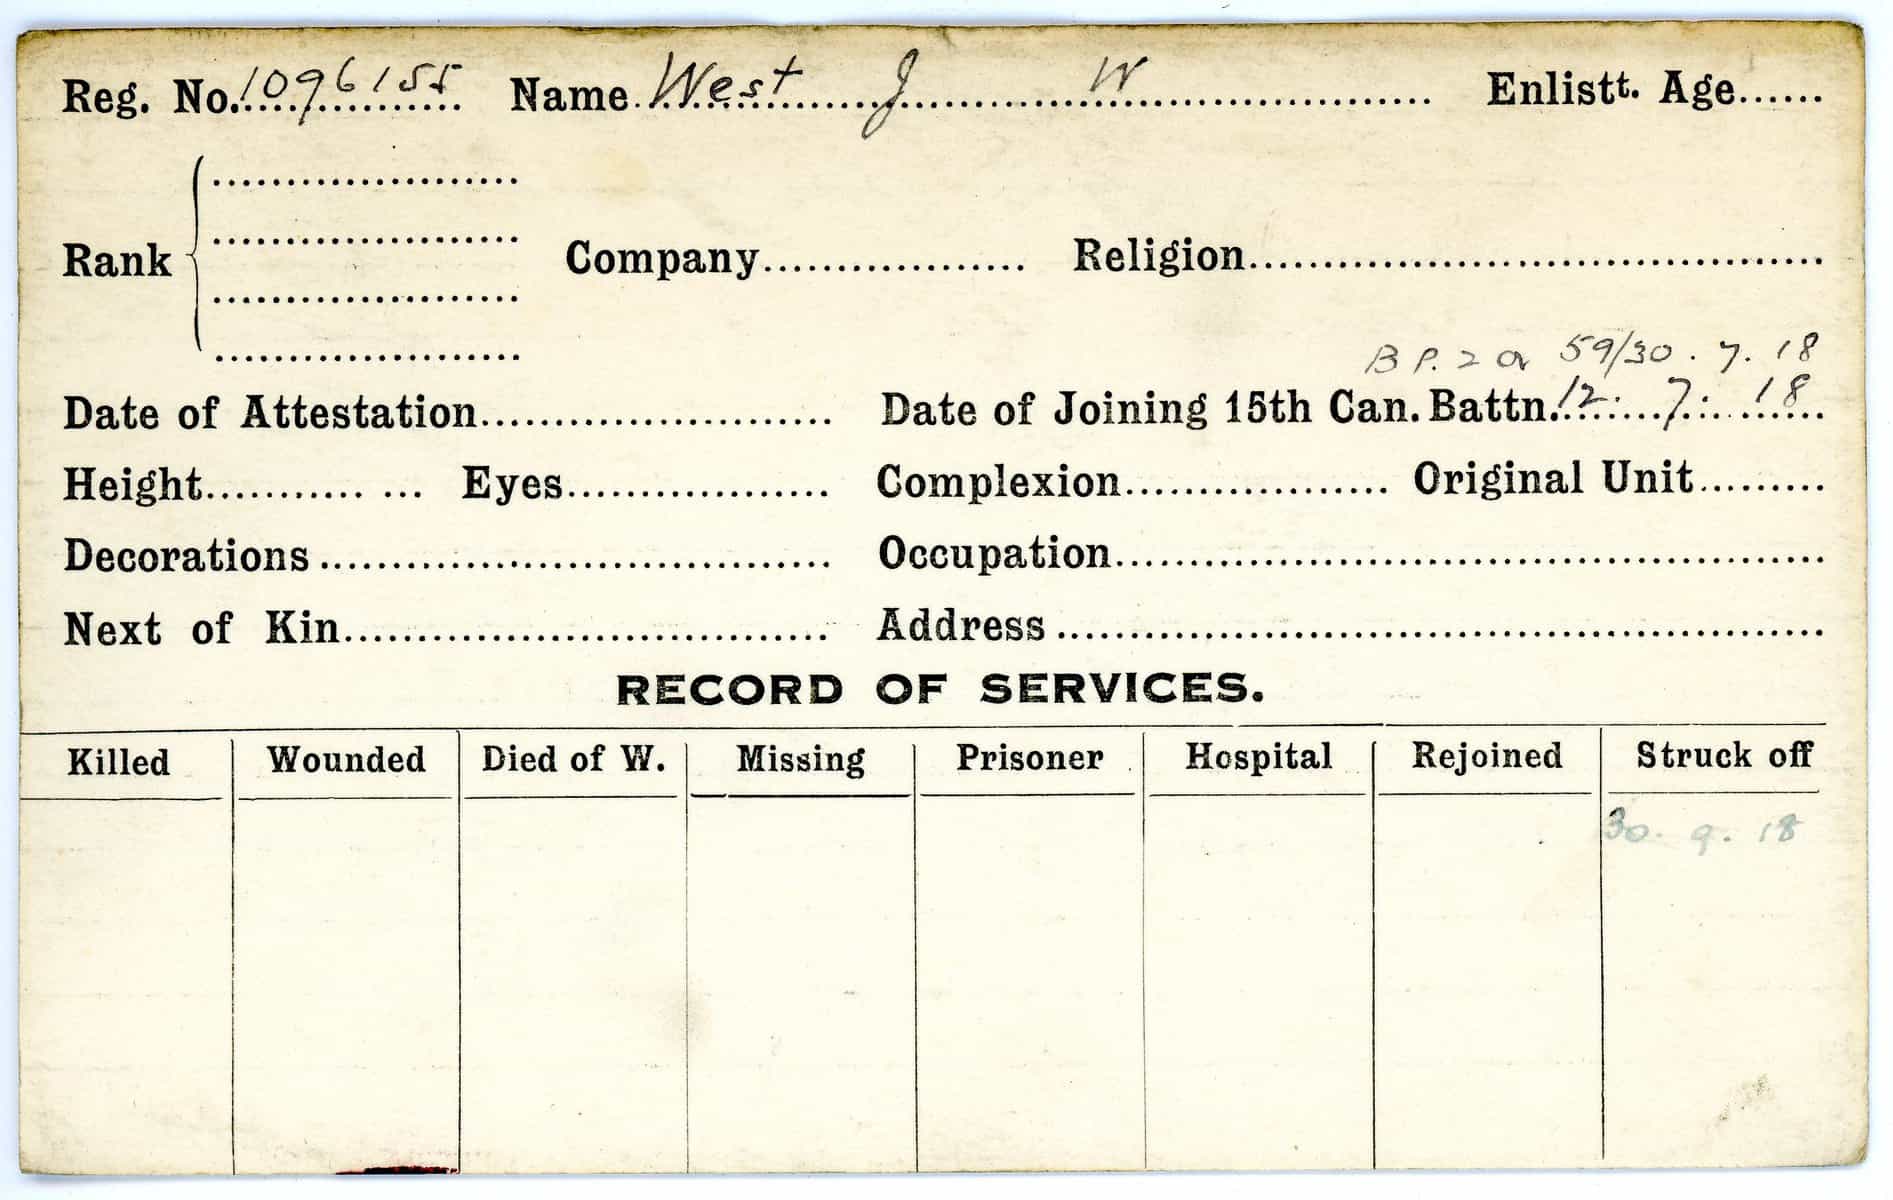 Reg. No. 1096155 Name West J W Enlistt. Age
Rank Company Religion
B P. 2 O 59/30. 7. 18
Date of Attestation Date of Joining 15th Can. Battn. 12. 7. 18
Height Eyes Complexion Original Unit
Decorations Occupation
Next of Kin Address
RECORD OF SERVICES.
Killed Wounded Died of W. Missing Prisoner Hospital Rejoined Struck off
30. 9. 18